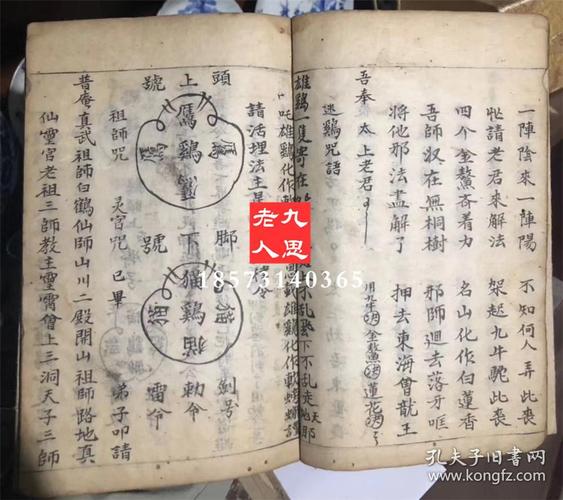 一陣陰來一陣陽　不知何人弄此喪
叱請老君來解法　架起九牛駝此喪
四个金鰲斉着力　名山化作白蓮香
吾師収在無桐樹　邪師迴去落牙哐
將他邪法盡解了　押去東海會龍王
用九牛 金鰲 蓮花
吾奉　太上老君
迷鷄咒語
雄鷄一隻寄在 不乱飛下不乱走
吒雄鷄化作軟 雄鷄化作軟
請活埋法主
頭上號
鷹鷄
脚下號
猫鷄狸
猫 猫
勅令
雷令
祖師咒　灵官咒　已畢　弟子叩請
普庵真武祖師白鶴仙師山川二殿開山祖師路地真
仙靈官老祖三師教主靈霄會上三洞天子三師
九思老人
18573140365
孔夫子旧書网